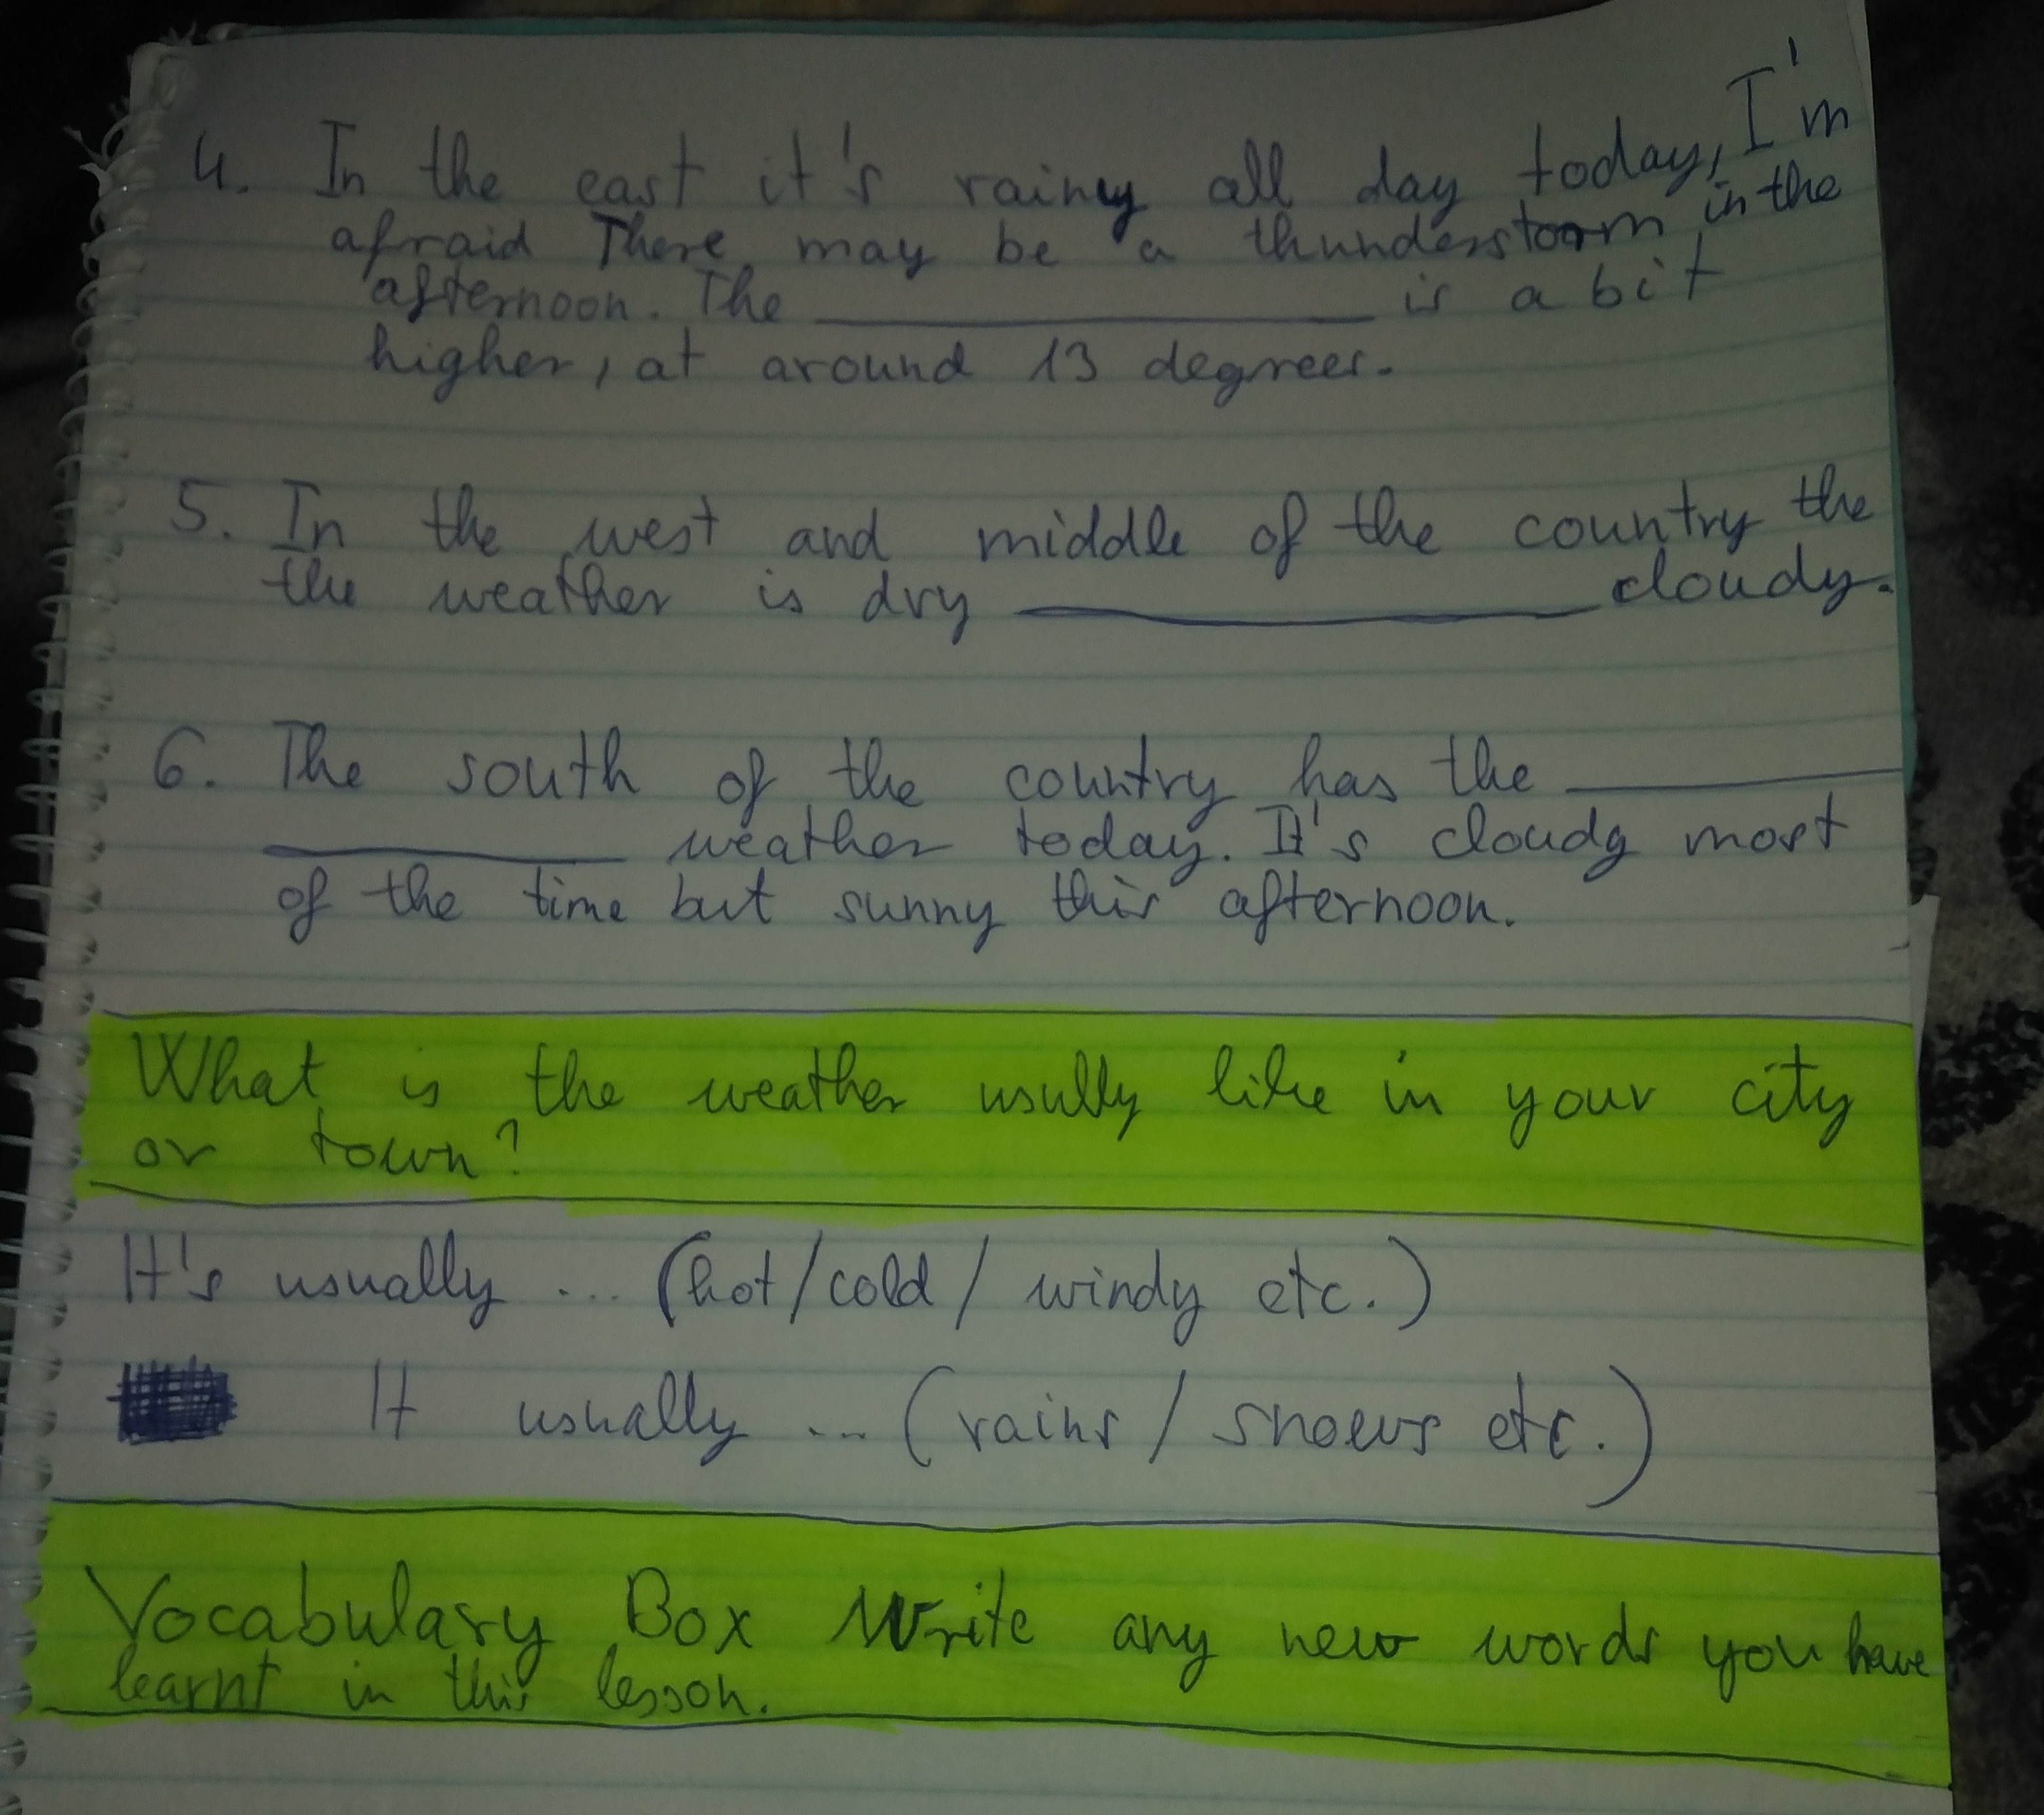 4. In the east it's rainy all day today, I'm
afraid There may be a thunderstoorm in the
afternoon. The ____________ is a bit
higher, at around 13 degrees.
5. In the west and middle of the country the
the weather is dry ____________ cloudy.
6. The south of the country has the ________
________ weather today. It's cloudy most
of the time but sunny this afternoon.
What is the weather usully like in your city
or town?
It's usually ... (hot/cold/ windy etc.)
It usually ... (rains/ snows etc.)
Vocabulary Box Write any new words you have
learnt in this lesson.